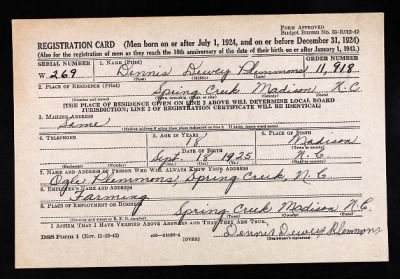 FORM APPROVED
REGISTRATION CARD (Men born on or after July 1, 1924, and on or before December 31, 1924)
(Also for the registration of men as they reach the 18th anniversary of the date of their birth on or after January 1, 1943.)
SERIAL NUMBER 1. NAME (Print) ORDER NUMBER
W 269 Dennis Dewey Plemmons 11,918
(First) (Middle) (Last)
2. PLACE OF RESIDENCE (Print)
Spring Creek Madison N.C
[THE PLACE OF RESIDENCE GIVEN ON LINE 2 ABOVE WILL DETERMINE LOCAL BOARD
JURISDICTION; LINE 2 OF REGISTRATION CERTIFICATE WILL BE IDENTICAL]
3. MAILING ADDRESS
Same
4. TELEPHONE 5. AGE IN YEARS 6. PLACE OF BIRTH
18 Madison
DATE OF BIRTH
Sept. 18 1925 N.C.
7. NAME AND ADDRESS OF PERSON WHO WILL ALWAYS KNOW YOUR ADDRESS
Plemmons, Spring Creek, N.C.
8. EMPLOYER'S NAME AND ADDRESS
Farming
9. PLACE OF EMPLOYMENT OR BUSINESS
Spring Creek Madison N.C.
I AFFIRM THAT I HAVE VERIFIED ABOVE ANSWERS AND THAT THEY ARE TRUE.
DSS Form 1 (OVER) Dennis Dewey Plemmons
(Registrant's signature)